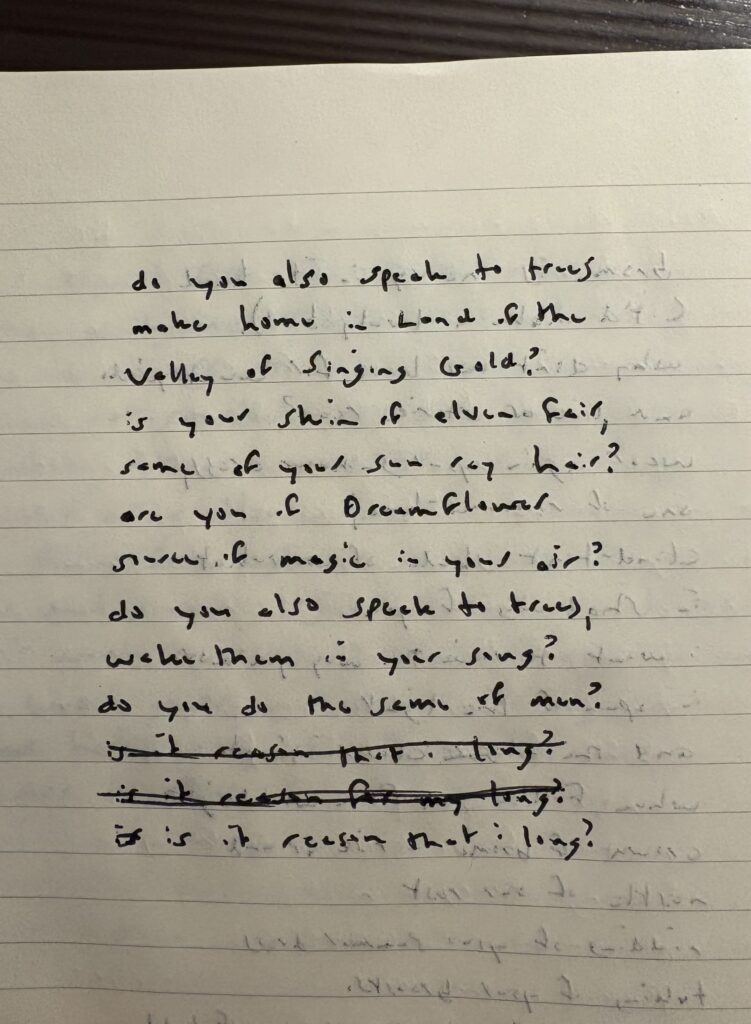 do you also speak to trees
make home in Land of the
Valley of Singing Gold?
is your skin of elven fair,
same of your sun ray hair?
are you of Dreamflower
source of magic in your air?
do you also speak to trees,
wake them in your song?
do you do the same of men?
is it reason that i long?
is it reason for my long?
is it reason that i long?